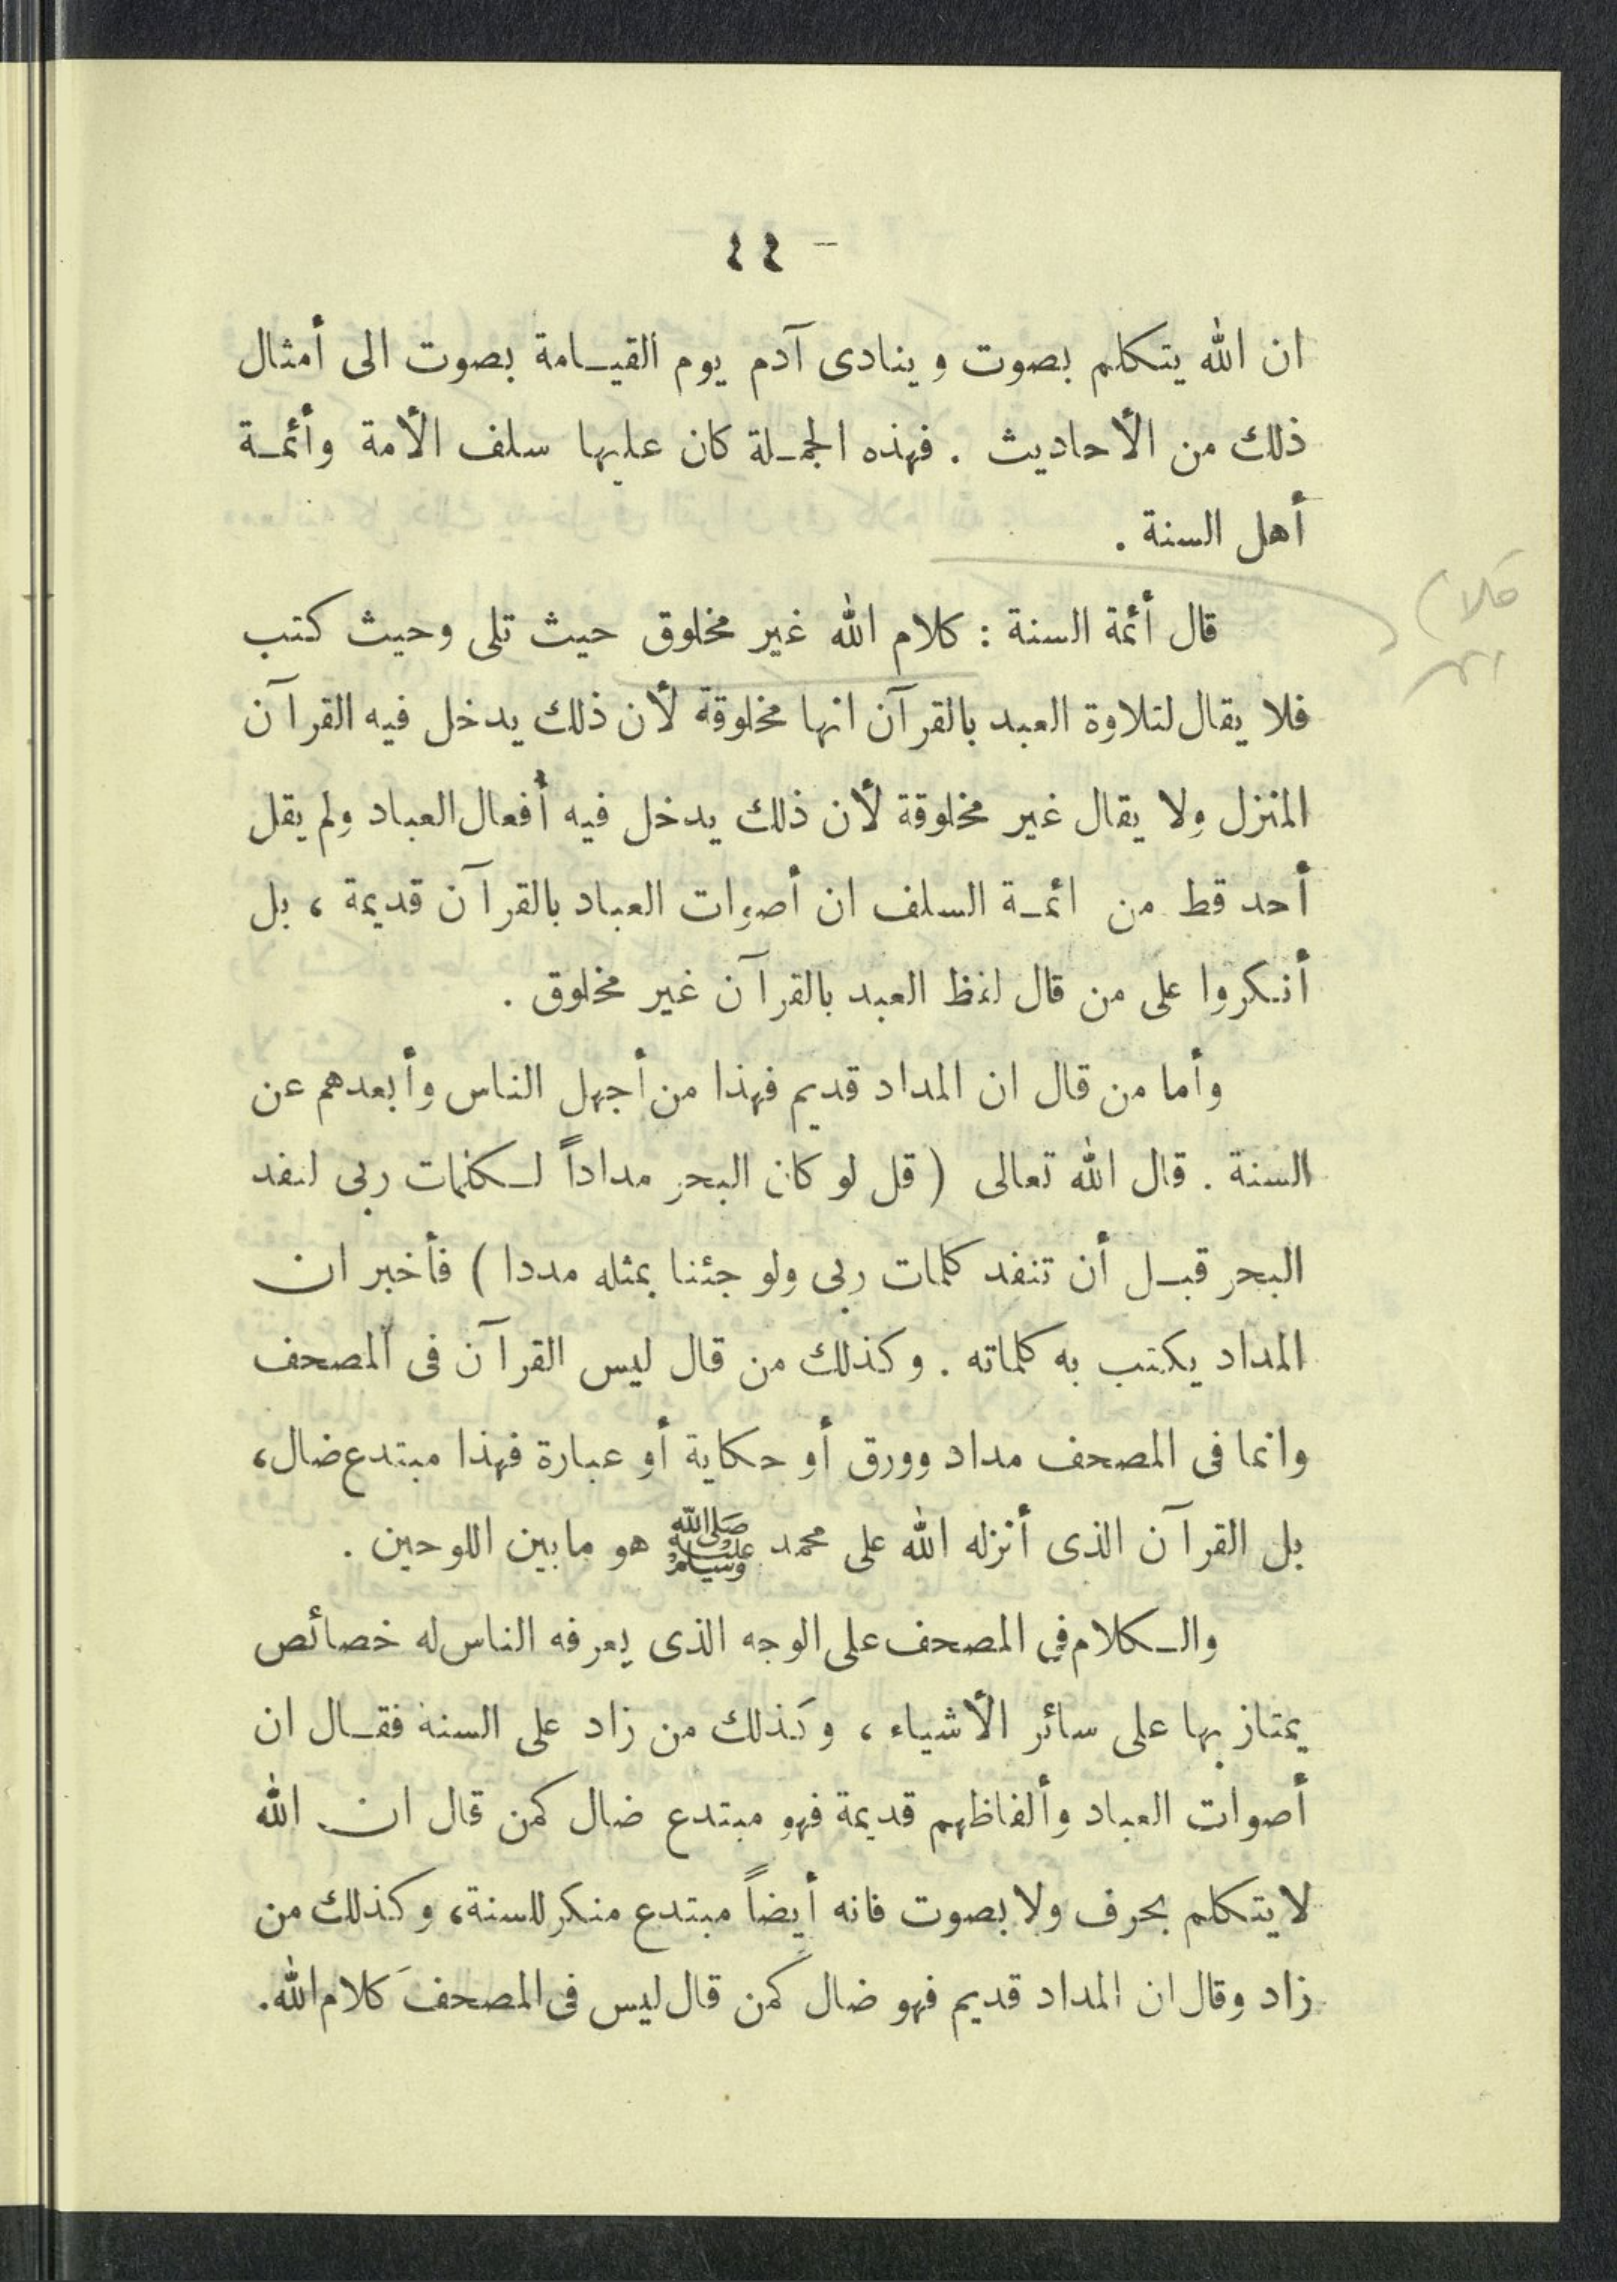 - ٤٤
ان الله يتكلم بصوت وينادى آدم يوم القيامة بصوت الى أمثال
ذلك من الأحاديث . فهذه الجملة كان عليها سلف الأمة وأئمة
أهل السنة .
قال أئمة السنة : كلام الله غير مخلوق حيث تلى وحيث كتب
فلا يقال لتلاوة العبد بالقرآن انها مخلوقة لأن ذلك يدخل فيه القرآن
المنزل ولا يقال غير مخلوقة لأن ذلك يدخل فيه أفعال العباد ولم يقل
أحد قط من ائمة السلف ان أصوات العباد بالقرآن قديمة ، بل
أنكروا على من قال لفظ العبد بالقرآن غير مخلوق .
وأما من قال ان المداد قديم فهذا من أجهل الناس وأبعدهم عن
السنة . قال الله تعالى ( قل لو كان البحر مداداً لكلمات ربى لنفد
البحر قبل أن تنفد كلمات ربى ولو جئنا بمثله مددا ) فأخبر ان
المداد يكتب به كلماته . وكذلك من قال ليس القرآن فى المصحف
وانما فى المصحف مداد وورق أو حكاية أو عبارة فهذا مبتدع ضال،
بل القرآن الذى أنزله الله على محمد ﷺ هو مابين اللوحين .
والكلام في المصحف على الوجه الذى يعرفه الناس له خصائص
يمتاز بها على سائر الأشياء ، وكذلك من زاد على السنة فقال ان
أصوات العباد وألفاظهم قديمة فهو مبتدع ضال كمن قال ان الله
لايتكلم بحرف ولا بصوت فانه أيضاً مبتدع منكر للسنة، وكذلك من
زاد وقال ان المداد قديم فهو ضال كمن قال ليس فى المصحف كلام الله.